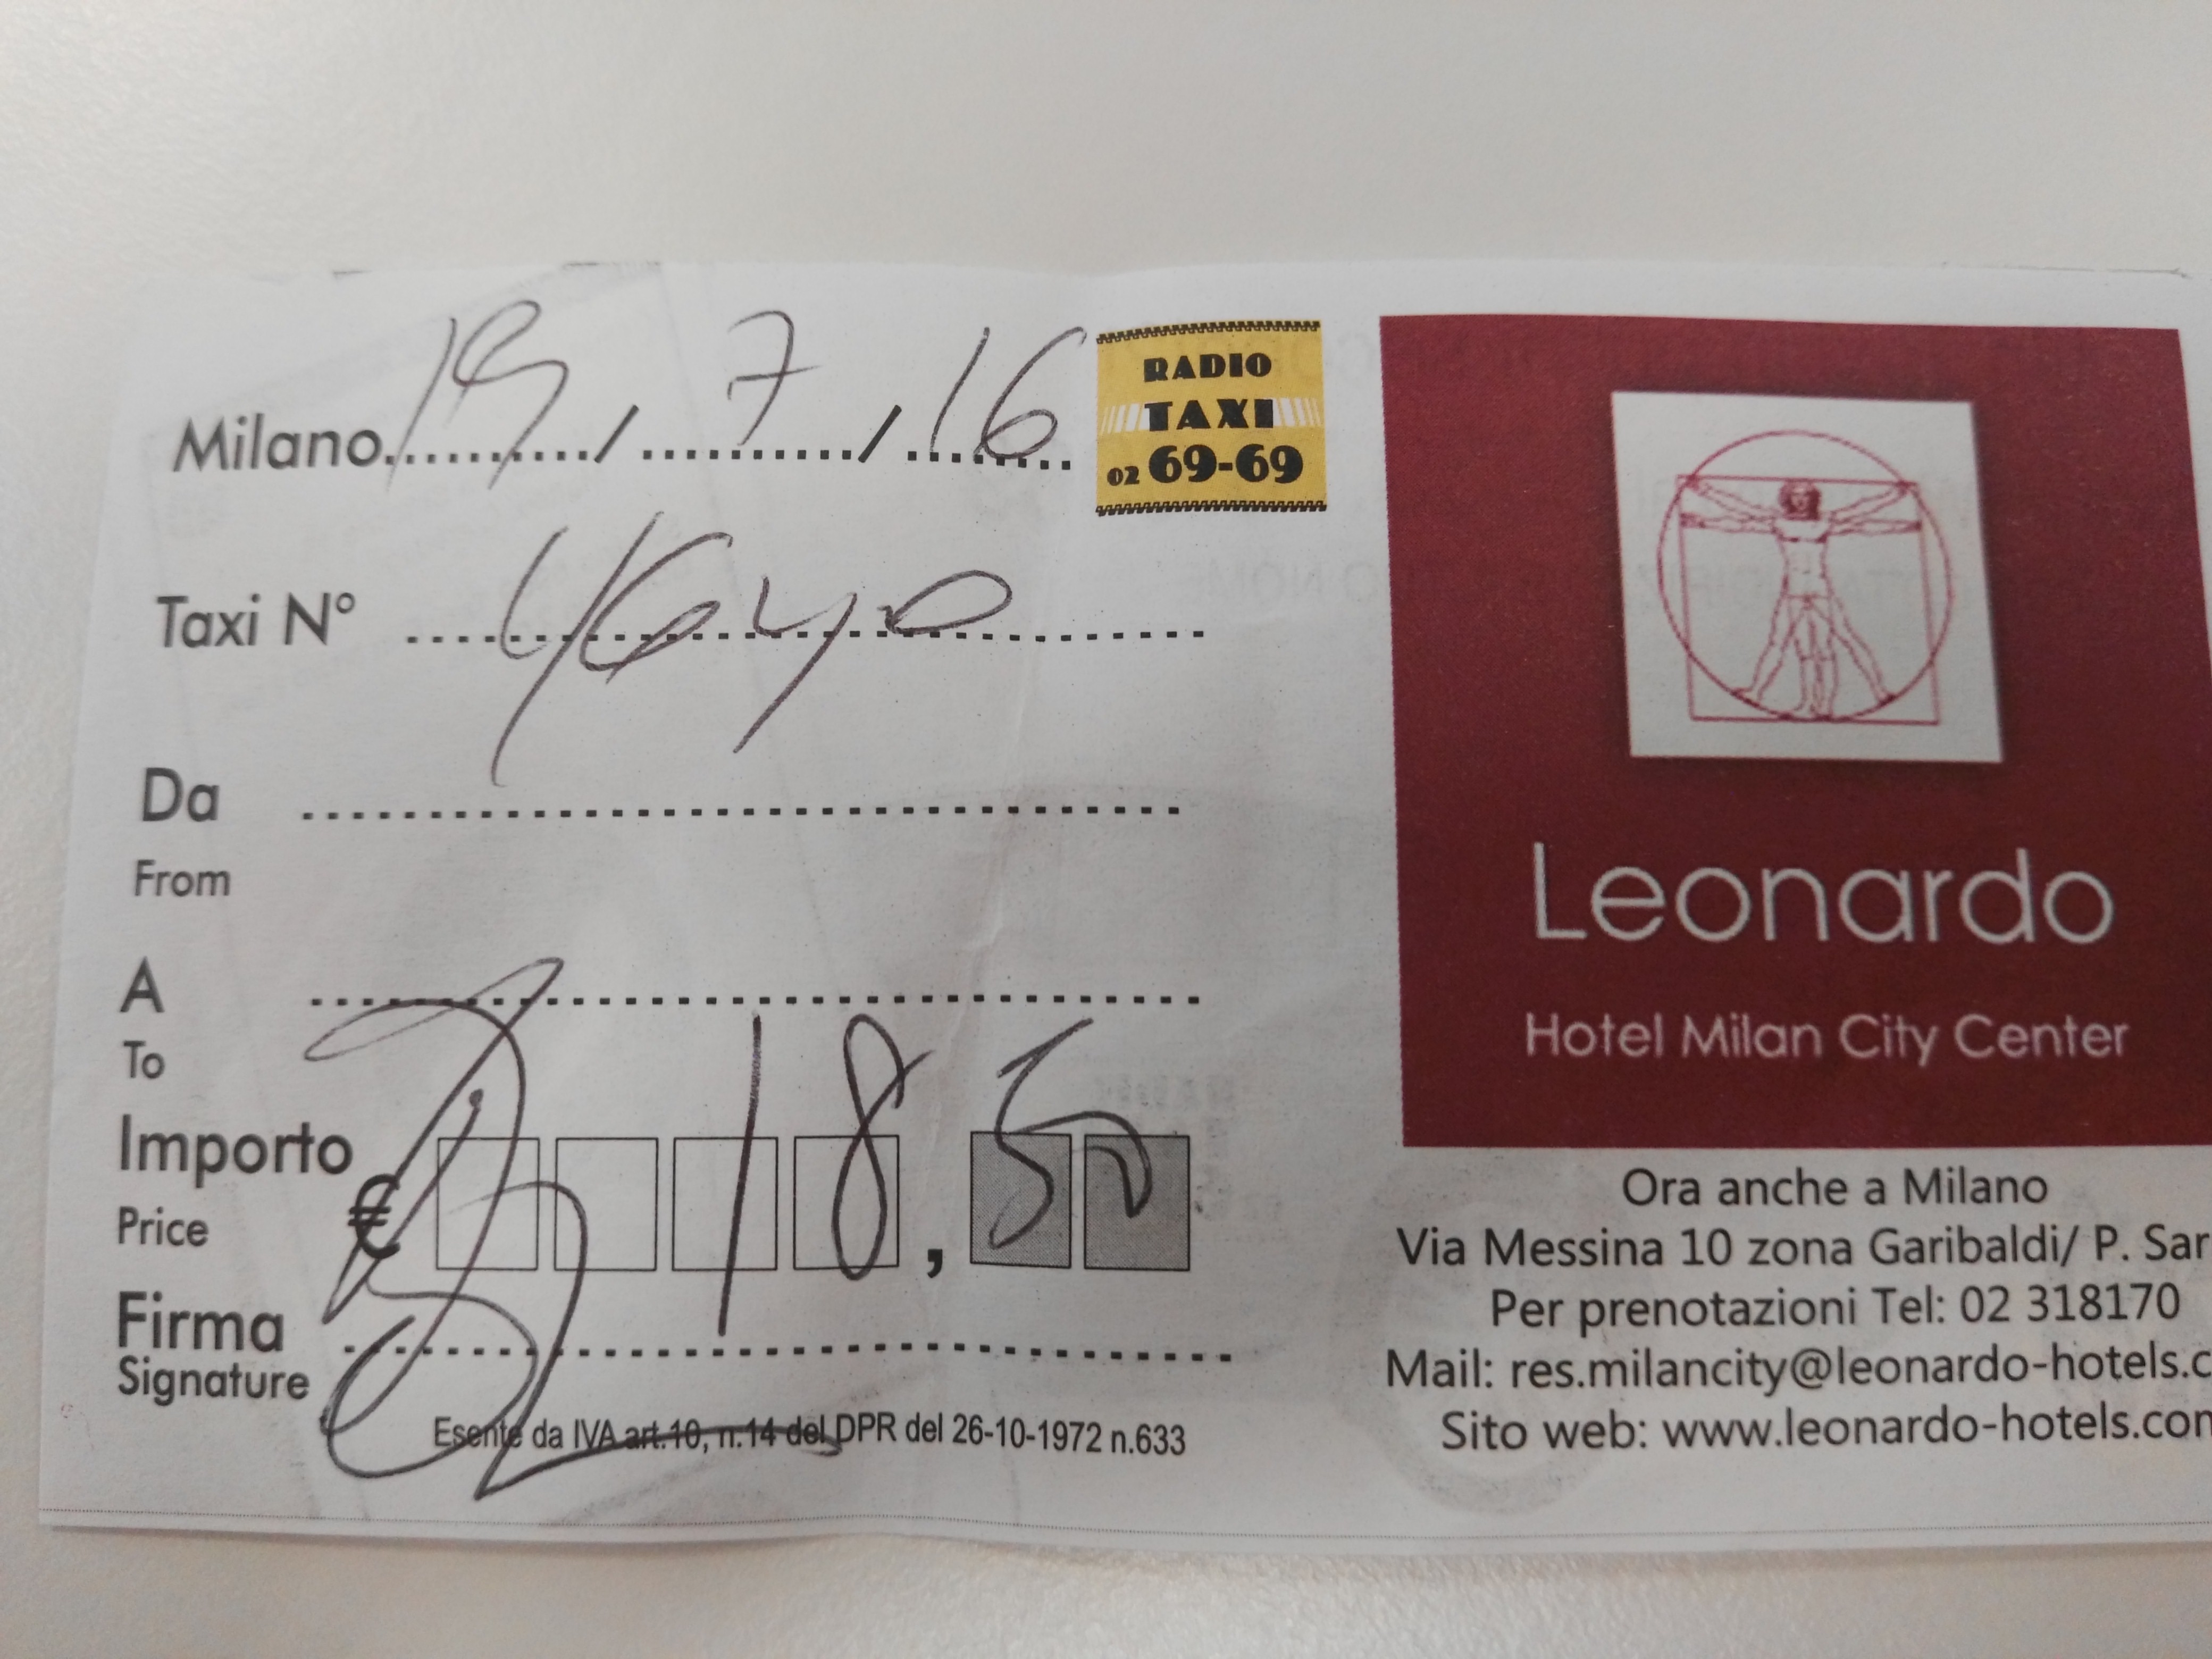 Milano 19 / 7 / 16
RADIO
TAXI
02 69-69
Taxi N° 4640
Da
From
A
To
Importo
Price
€ 18,50
Firma
Signature
Esente da IVA art.10, n.14 del DPR del 26-10-1972 n.633
Leonardo
Hotel Milan City Center
Ora anche a Milano
Via Messina 10 zona Garibaldi/ P. Sar
Per prenotazioni Tel: 02 318170
Mail: res.milancity@leonardo-hotels.c
Sito web: www.leonardo-hotels.com